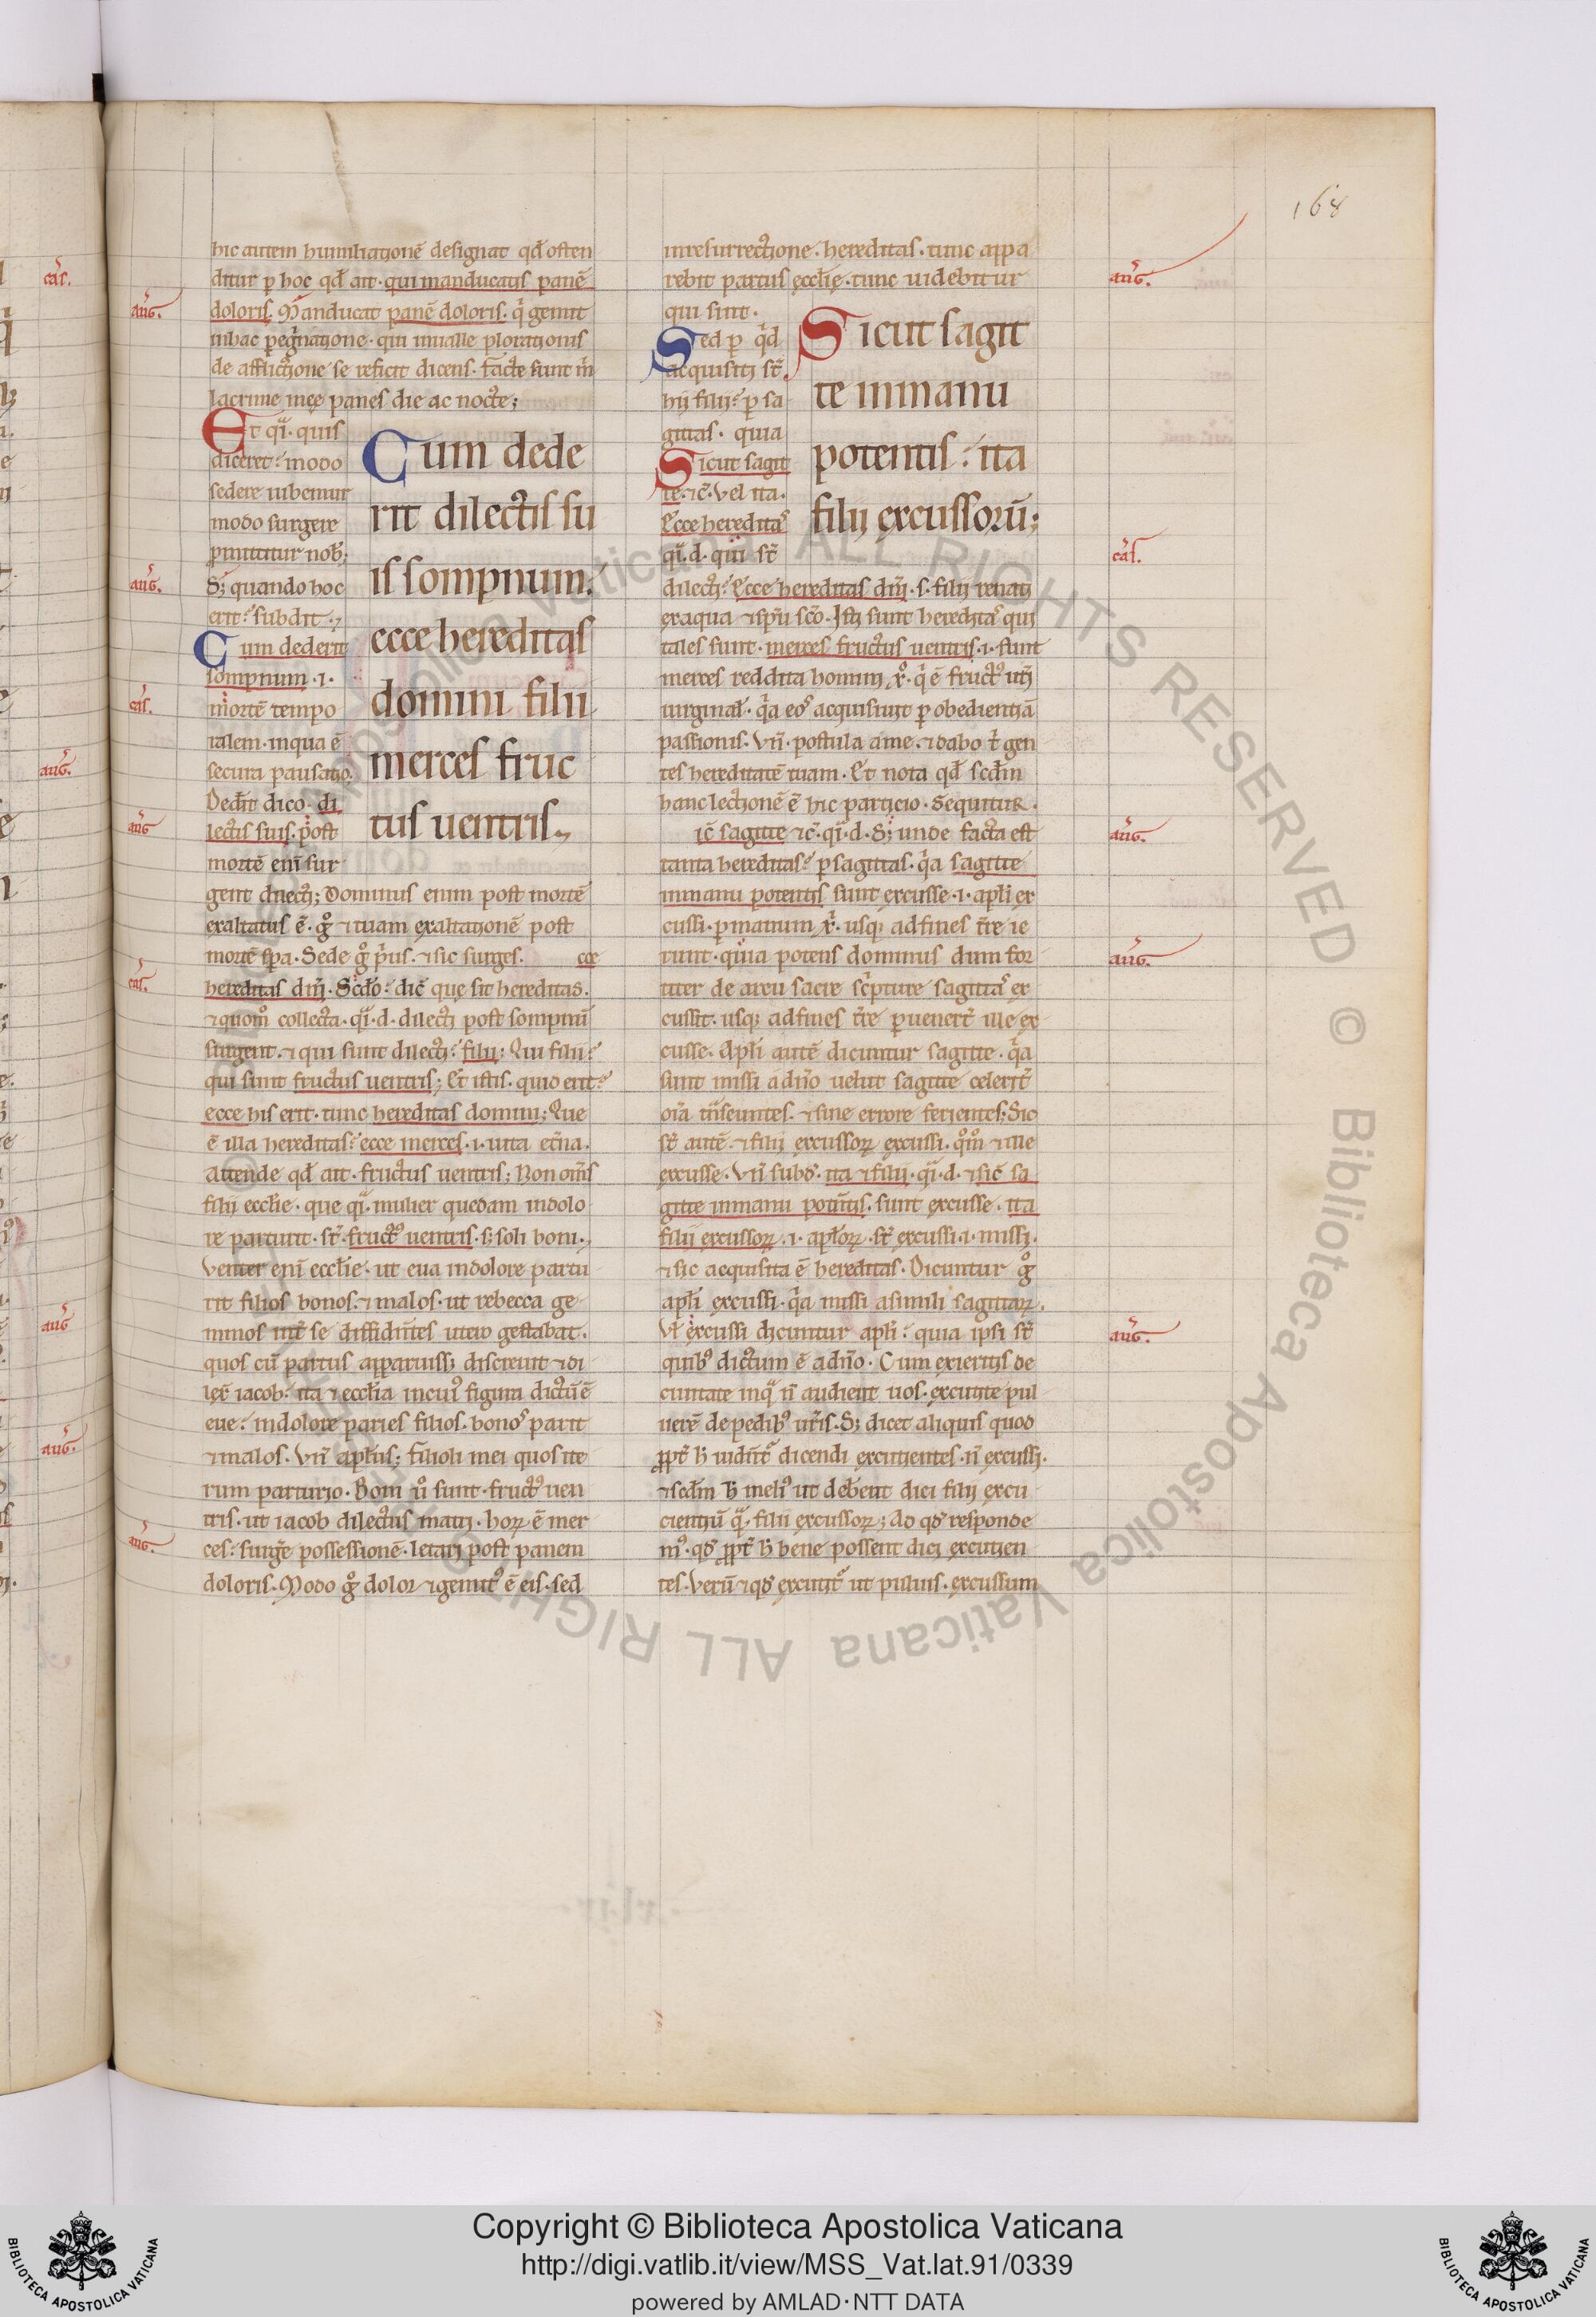 168
hic autem humiliationē designat qđ osten
ditur p hoc qđ ait· qui manducatis panē
doloris. Manducat panē doloris. q̇ gemit
inhac pegͥnatione· qui inualle plorationis
de afflictione se reficit dicens. facte sunt m̅
lacrime meę panes die ac nocte;
Et qͣi· quis
diceret: modo
sedere iubemur
modo surgere
pmittitur nob̄;
S; quando hoc
erit: subdit·
Cum dederit
sompnum ·i·
mortē tempo
ralem· inqua ē
secura pausatio.
Dederit dico· di
lectis suis. post
mortē enī sur
gent dilecti; Dominus enim post mortē
exaltatus ē. gͦ ⁊ tuam exaltationē post
mortē spa. Sede gͦ pͥus. ⁊ sic surges. cce
hereditas dnī. Scdo: dic̄ que sit hereditas.
⁊ quomͦ collecta· qͣi· d· dilecti post sompnū
surgent. ⁊ qui sunt dilecti: filii: Qui filii:
qui sunt fructus uentris; Et istis· quid erit:
ecce his erit· tunc hereditas domini; Que
ē illa hereditas: ecce merces·i· uita etn̄a.
Attende qđ ait· fructus uentris; Non om̄s
filii ecclie· que qͣi· mulier quedam indolo
re parturit· st̄· fructꝰ uentris· s; soli boni·
Venter enī ecclie· ut eua indolore partu
rit filios bonos ⁊ malos· ut rebecca ge
minos int̄ se dissidentes utero gestabat.
quos cū partus apparuiss; discreuit ⁊ di
lex̄ iacob: ita ⁊ ecclia incuiꝰ figura dictū ē
eue: indolore paries filios· bonos parit
⁊ malos. Vn̄ apls̄; filioli mei quos ite
rum parturio. Boni ů sunt· fructꝰ uen
tris· ut iacob dilectus matri· horꝝ ē mer
ces: surg̅e possessionē· letari post panem
doloris. Modo gͦ dolor ⁊ gemitꝰ ē eis· sed
Cum dede
rit dilectis su
is sompnum:
ecce hereditas
domini filii
merces fruc
tus uentris
inresurrectione· hereditas· tunc appa
rebit partus ęcclię· tunc uidebitur
qui sint·
Sed p qͥd
acquisiti st̄
hii filii: p sa
gittas· quia
Sicut sagit
te· ⁊c̄· Vel ita.
Ecce hereditas
qͣi· d· qui st̄
dilecti: Ecce hereditas dnī·s· filii renati
exaqua ⁊ spū sc̄o. Isti sunt hereditas qui
tales sunt· merces fructus uentris·i· sunt
merces reddita homini xͦ· q̇ ē fructꝰ ut̄i
uirginal̄· qͣ eos acquisiuit p obedientiā
passionis. Vn̄· postula ame· ⁊ dabo t̄ gen
tes hereditatē tuam· Et nota qđ scdm
hanc lectionē ē hic particio· Sequitur·
ic̄ sagitte ⁊c̄· qͣi· d· S; unde facta est
tanta hereditas: p sagittas· qͣ sagitte
inmanu potentis sunt excusse·i· apl̄i ex
cussi· pmanum xͥ· usq; adfines tr̄re ie
runt· quia potens dominus dum for
titer de arcu sacre scͥpture sagittas ex
cussit· usq; adfines tr̄re puenert̄ ille ex
cusse· Apl̄i autē dicuntur sagitte· qͣ
sunt missi adn̄o uelut sagitte celerit̄
oīa tn̄seuntes· ⁊ sine errore ferientes; Sic
st̄ autē· ⁊ filii excussorꝝ excussi· qͦmͦ ⁊ ille
excusse· Vn̄ subd· ita ⁊ filii· qͣi·d· ⁊ sic̄ sa
gitte inmanu potn̄tis· sunt excusse· ita
filii excussorꝝ·i· apl̄orꝝ· st̄ excussi·i· missi·
⁊ sic acquisita ē hereditas. Dicuntur gͦ
apl̄i excussi· qͣ missi asimili sagittarꝝ·
Vl̄ excussi dicuntur apl̄i: quia ipsi st̄
quibꝰ dictum ē adn̄o· Cum exieritis de
ciuitate inqͣ n̄ audient uos· excutite pul
uerē de pedibꝰ ur̄is. S; dicet aliquis quod
ppt̄ h̄ uidnt̄ᷣ dicendi excutientes· n̄ excussi·
⁊ scdm h̄ meliꝰ ut debent dici filii excu
cientiū qͣ· filii excussorꝝ; Ad qđ responde
mꝰ· qđ ppt̄ h̄ bene possent dici excutien
tes· Verū ⁊ qđ excutitᷣ ut puluis· excussum
Sicut sagit
te inmanu
potentis: ita
filii excussorū;
cas̄.
aug̅.
aug̅.
cas̄.
aug̅
cas̄.
aug̅.
aug̅.
cas̄.
aug̅.
aug̅.
aug̅.
aug̅.
aug̅
aug̅.
Copyright © Biblioteca Apostolica Vaticana
http://digi.vatlib.it/view/MSS_Vat.lat.91/0339
powered by AMLAD·NTT DATA
BIBLIOTECA APOSTOLICA VATICANA
BIBLIOTECA APOSTOLICA VATICANA
© Biblioteca Apostolica Vaticana ALL RIGHTS RESERVED © Biblioteca Apostolica Vaticana ALL RIGHTS RESERVED